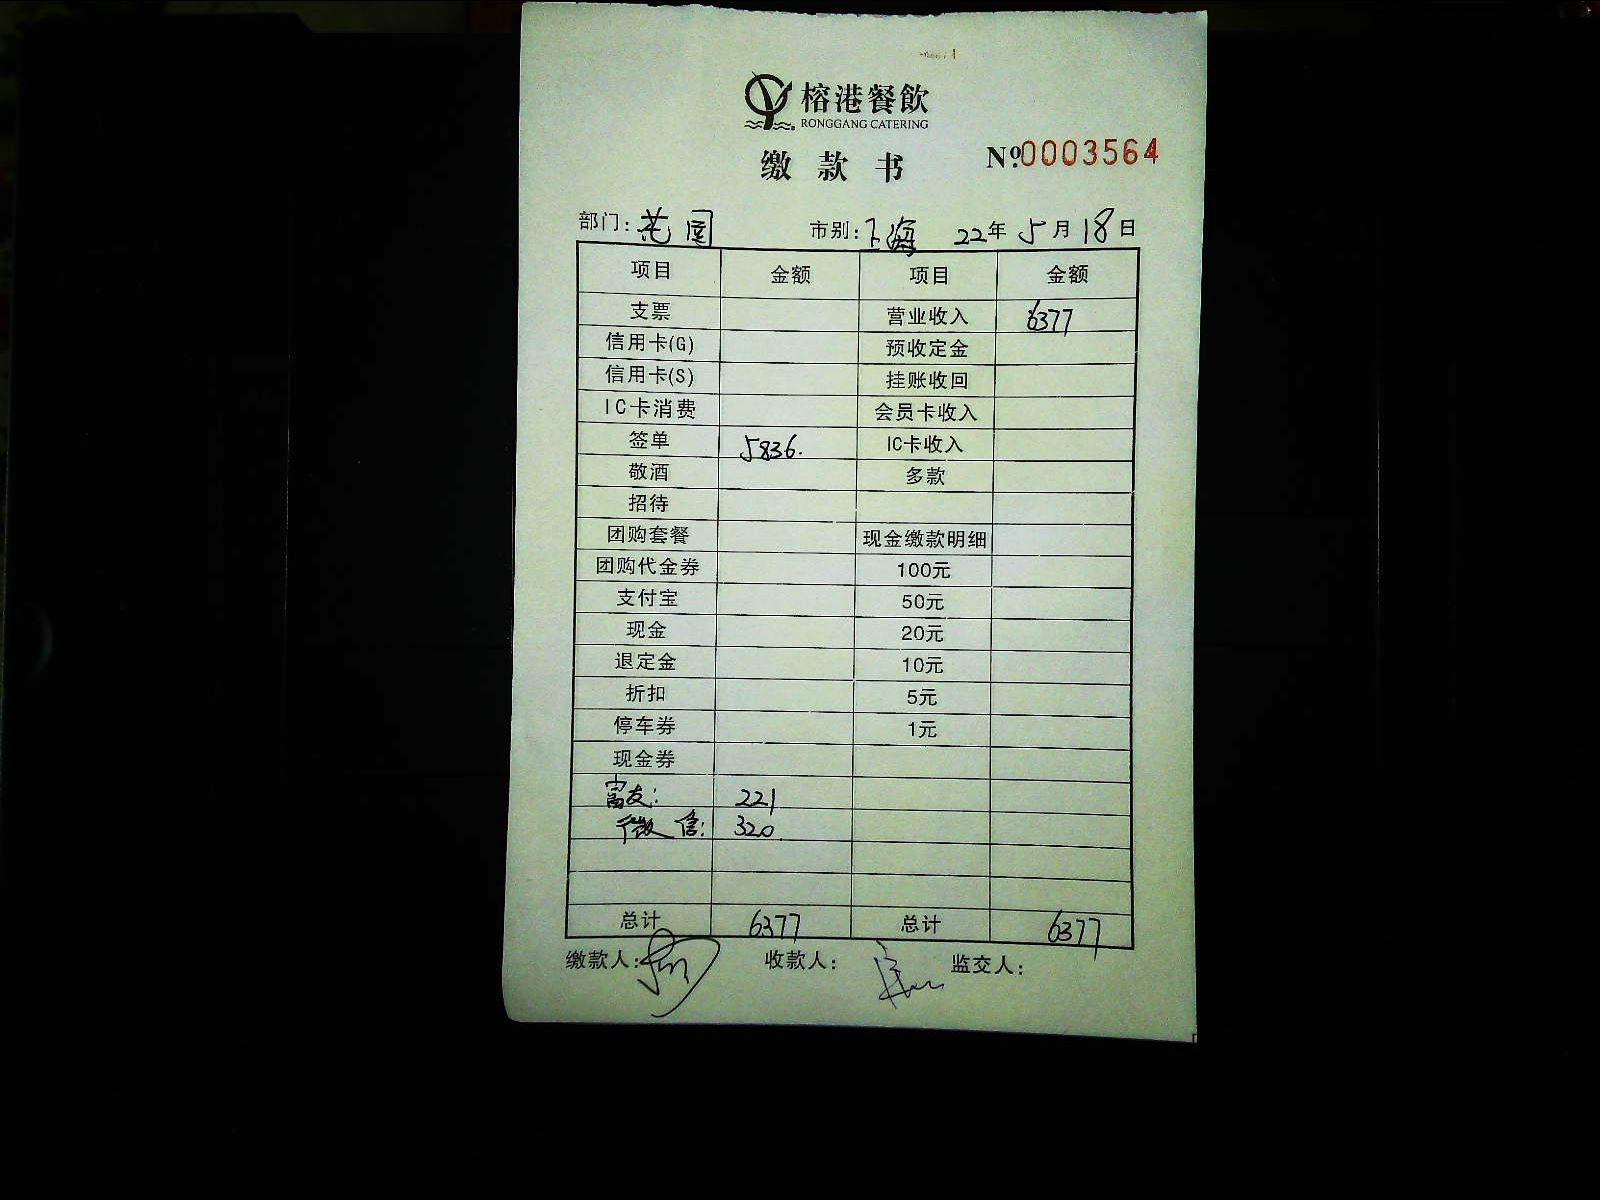 榕港餐飲
RONGGANG CATERING
缴款书 №0003564
部门: 花园 市别: 上海 22年 5月 18日
项目 金额 项目 金额
支票 营业收入 6377
信用卡(G) 预收定金
信用卡(S) 挂账收回
IC卡消费 会员卡收入
签单 5836. IC卡收入
敬酒 多款
招待
团购套餐 现金缴款明细
团购代金券 100元
支付宝 50元
现金 20元
退定金 10元
折扣 5元
停车券 1元
现金券
富友: 221
微信: 320
总计 6377 总计 6377
缴款人: 收款人: 监交人: